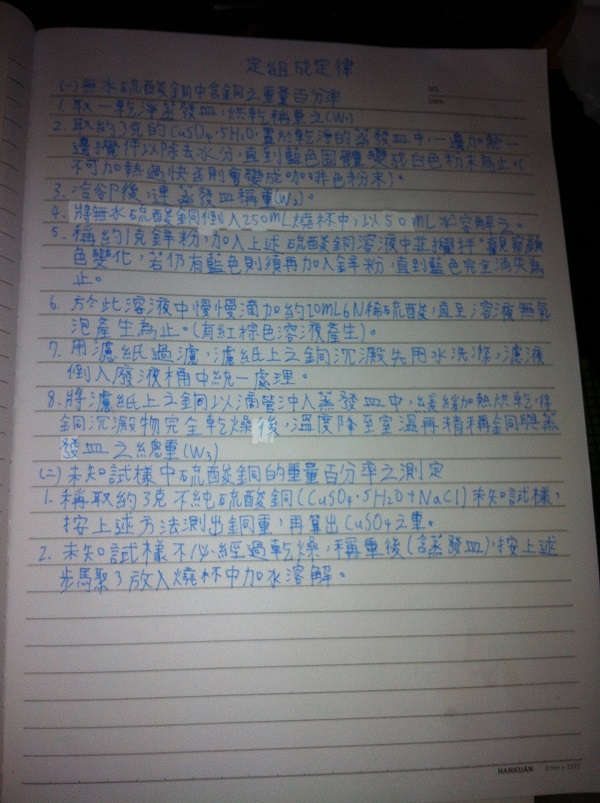 定組成定律
NO.
Date
(一)無水硫酸銅中含銅之重量百分率
1.取一乾淨蒸發皿,烘乾稱重之(W₁)
2.取約3克的CuSO₄·5H₂O置於乾淨的蒸發皿中,一邊加熱一
邊攪伴以除去水分,直到藍色固體變成白色粉末為止。(
不可加熱過快否則會變成咖啡色粉末)。
3.冷卻後,連蒸發皿稱重(W₂)。
4.將無水硫酸銅倒入250mL燒杯中,以50mL水溶解之。
5.稱約1克鋅粉,加入上述硫酸銅溶液中並攪拌,觀察顏
色變化,若仍有藍色則須再加入鋅粉,直到藍色完全消失為
止。
6.於此溶液中慢慢滴加約20mL6N稀硫酸,直至溶液無氣
泡產生為止。(有紅棕色溶液產生)。
7.用濾紙過濾,濾紙上之銅沉澱先用水洗潔,濾液
倒入廢液桶中統一處理。
8.將濾紙上之銅以滴管沖入蒸發皿中,緩緩加熱烘乾,待
銅沉澱物完全乾燥後,溫度降至室溫再精稱銅與蒸
發皿之總重(W₃)
(二)未知試樣中硫酸銅的重量百分率之測定
1.稱取約3克不純硫酸銅(CuSO₄·5H₂O+NaCl)未知試樣,
按上述方法測出銅重,再算出CuSO₄之重。
2.未知試樣不必經過乾燥,稱重後(含蒸發皿),按上述
步驟3放入燒杯中加水溶解。
NANKUAN